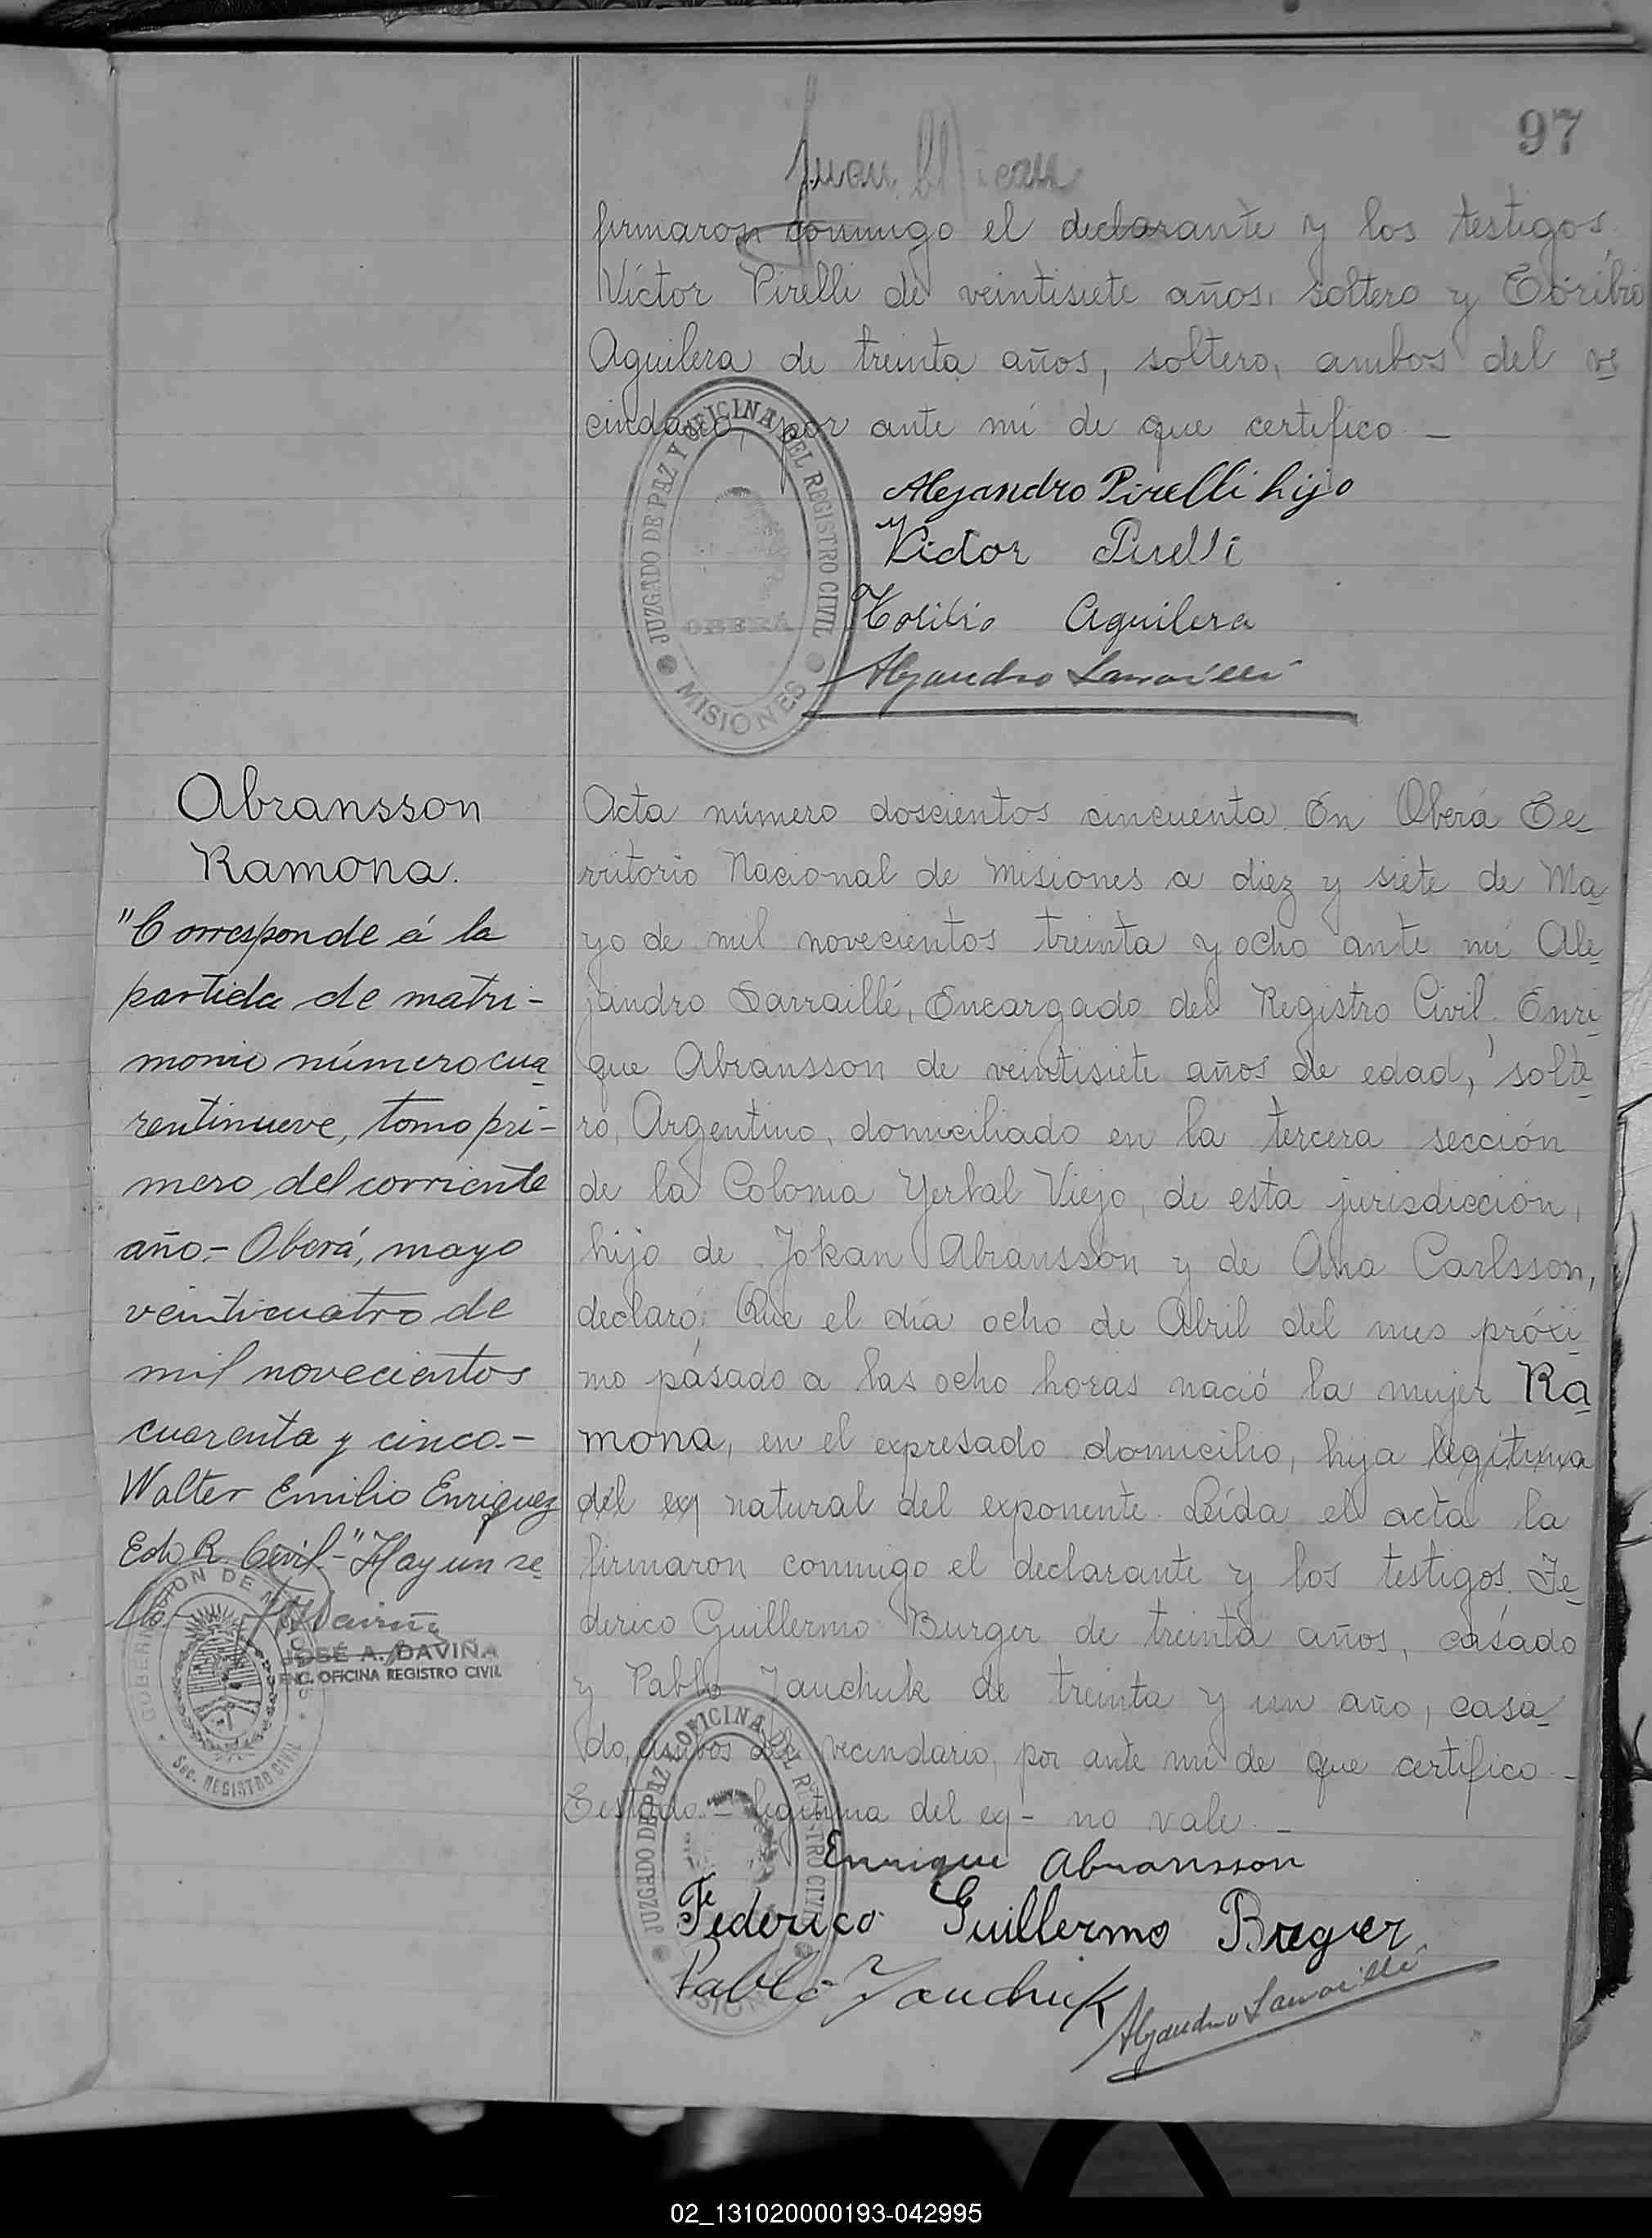 97
Juan
firmaron conmigo el declarante y los testigos
Víctor Pirelli de veintisiete años, soltero y Toribio
Aguilera de treinta años, soltero, ambos del ve
cindario, por ante mí de que certifico —
JUZGADO DE PAZ Y OFICINA DEL REGISTRO CIVIL
OBERÁ
MISIONES
Alejandro Pirelli hijo
Victor Pirelli
Toribio Aguilera
Alejandro Sarraillé
Abransson
Ramona.
"Corresponde á la
partida de matri-
monio número cua
rentinueve, tomo pri-
mero, del corriente
año.- Oberá, mayo
veinticuatro de
mil novecientos
cuarenta y cinco.-
Walter Emilio Enriquez
Edo R. Civil-" Hay un se
llo.-
GOBERNACION DE MISIONES
JOSÉ A. DAVIÑA
ENC. OFICINA REGISTRO CIVIL
Sec. REGISTRO CIVIL
Acta número doscientos cincuenta. En Oberá Te-
rritorio Nacional de Misiones a diez y siete de Ma
yo de mil novecientos treinta y ocho ante mí Ale
jandro Sarraillé, Encargado del Registro Civil, Enri
que Abransson de veintisiete años de edad, solte
ro, Argentino, domiciliado en la tercera sección
de la Colonia Yerbal Viejo, de esta jurisdicción,
hijo de Johan Abransson y de Ana Carlsson,
declaró: Que el día ocho de Abril del mes próxi
mo pásado a las ocho horas nació la mujer Ra
mona, en el expresado domicilio, hija legitima
del ex natural del exponente. Leída el acta la
firmaron conmigo el declarante y los testigos. Fe
derico Guillermo Burger de treinta años, casado
y Pablo Jauchuk de treinta y un año, casa-
do, ambos del vecindario, por ante mi de que certifico -
Testado - legitima del ex - no vale. -
JUZGADO DE PAZ Y OFICINA DEL REGISTRO CIVIL
MISIONES
Enrique Abransson
Federico Guillermo Burger
Pablo Jauchuk
Alejandro Sarraillé
02_131020000193-042995